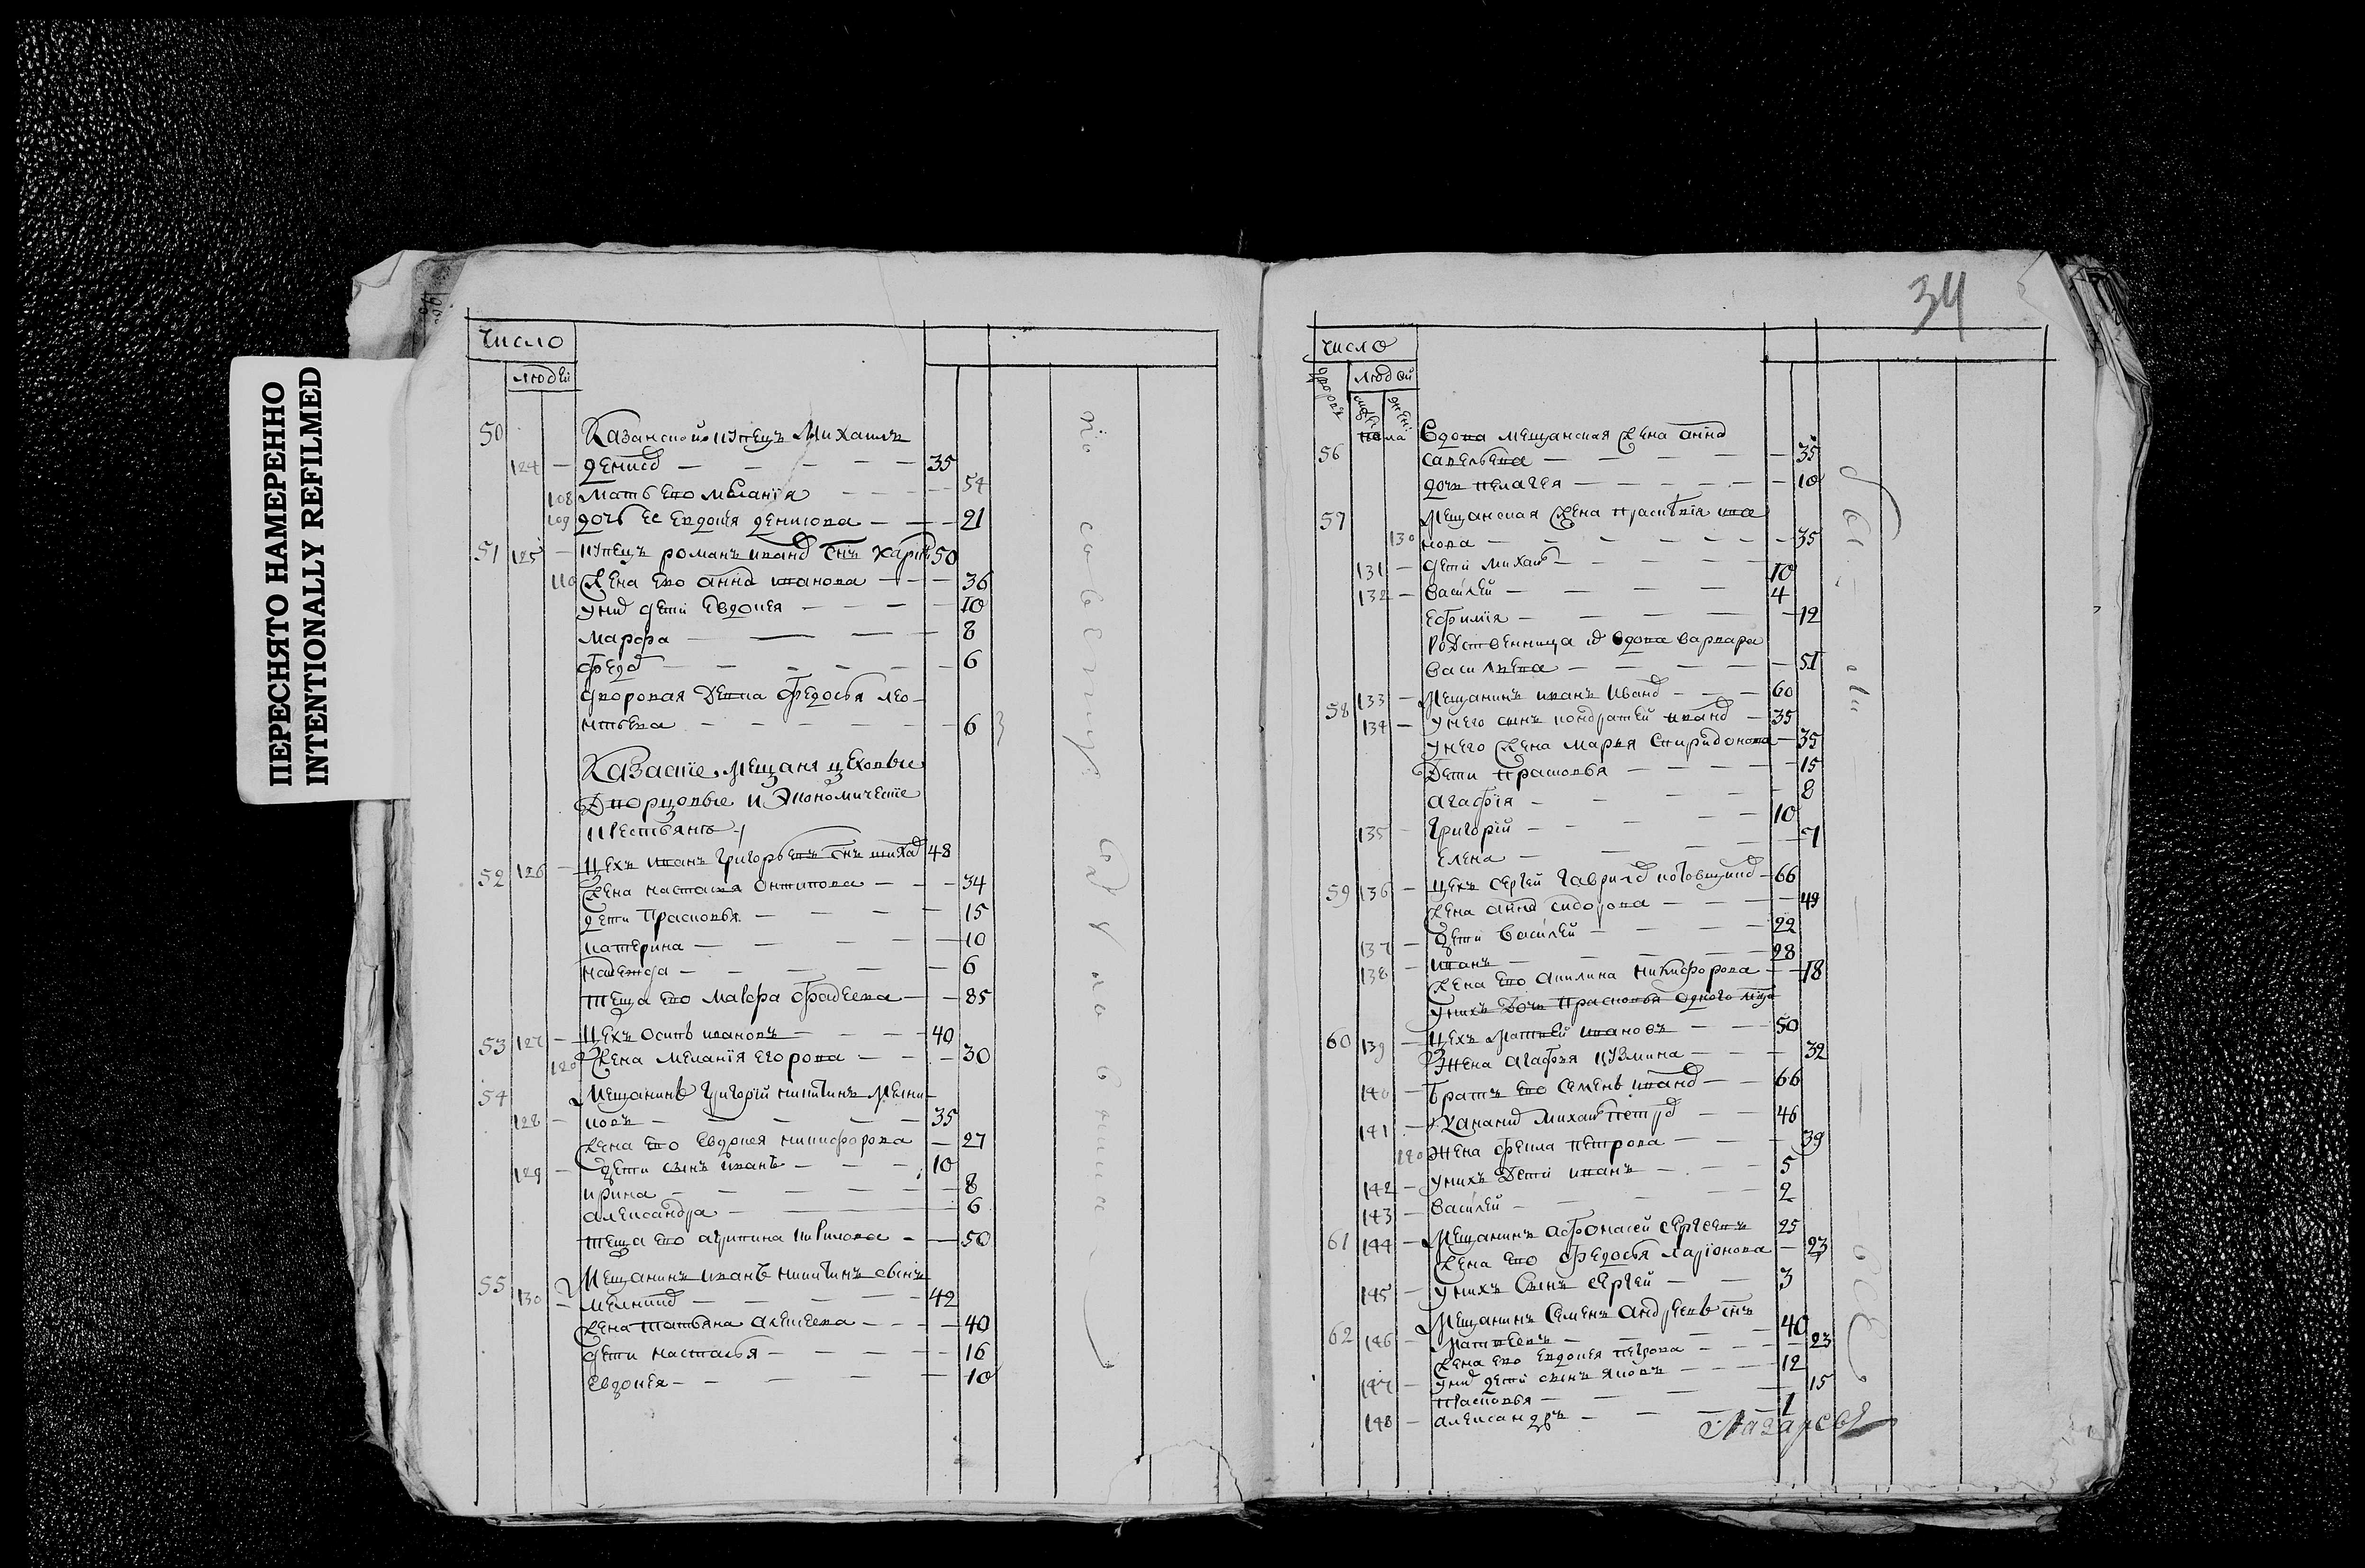 ПЕРЕСНЯТО НАМЕРЕННО
INTENTIONALLY REFILMED
Число
людей
50 Казанской купецъ Михаилъ
124 — 35
108 мать ево 54
109 дочь ее Евдокея денисова — 21
51 125 — купецъ романъ 50
110 жена ево анна иванова — 36
дети Евдокея — 10
марфа — 8
6
дворовая Девка Федосья лео-
нтьева — 6
Казанские мещаня цеховые
Дворцовые и Экономические
крестьянъ
52 126 — Цехъ иванъ григорьевъ снъ 48
жена настасья онтипова — 34
дети Прасковья — 15
катерина — 10
надежда — 6
теща ево марфа фадеева — 85
53 127 — Цехъ осипъ ивановъ — 40
120 жена меланїя Егорова — 30
54 Мещанинъ григорїй никитинъ Мелни-
128 — ковъ — 35
жена ево Евдокея никифорова — 27
129 — дети сынъ иванъ — 10
ирина — 8
александра — 6
теща ево агрипина — 50
55 Мещанинъ иванъ никитинъ сынъ
130 — 42
жена татьяна алексеева — 40
дети настасья — 16
Евдокея — 10
34
число
людей
56 Вдова мещанская жена анна
савельева — 35
дочь пелагея — 10
57 Мещанская жена праскевїя ива
130 нова — 35
131 — дети михаи — 10
132 — василей — 4
ефимия — 12
родственница вдова варвара
васильева — 51
58 133 — Мещанинъ иванъ — 60
134 — унего сынъ кондратей — 35
унего жена марья спиридонова — 35
Дети прасковья — 15
агафїя — 8
135 — григорїй — 10
елена — 7
59 136 — цехъ сергей — 66
жена анна сидорова — 49
137 — дети василей — 22
138 — иванъ — 28
жена ево акилина никифорова — 18
унихъ дочь прасковья одного
60 139 — цехъ матвей ивановъ — 50
жена агафья кузмина — 32
140 — братъ ево семенъ — 66
141 — 46
120 жена фекла петрова — 39
142 — унихъ дети иванъ — 5
143 — василей — 2
61 144 — Мещанинъ афонасей сергеевъ 25
жена ево федосья ларїонова — 23
145 — унихъ сынъ сергей — 3
62 Мещанинъ семенъ андреевъ снъ
146 — матвеевъ — 40
жена ево евдокея петрова — 23
147 — дети сынъ яковъ — 12
прасковья — 15
148 — александръ — 1